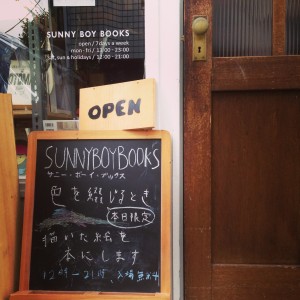 SUNNY BOY BOOKS
open / 7 days a week
mon - fri / 12:00 - 23:00
sat, sun & holidays / 12:00 - 21:00
OPEN
SUNNYBOYBOOKS
サニー・ボーイ・ブックス
色を綴じるとき
本日限定
描いた絵を
本にします
12時-21時、入場無料